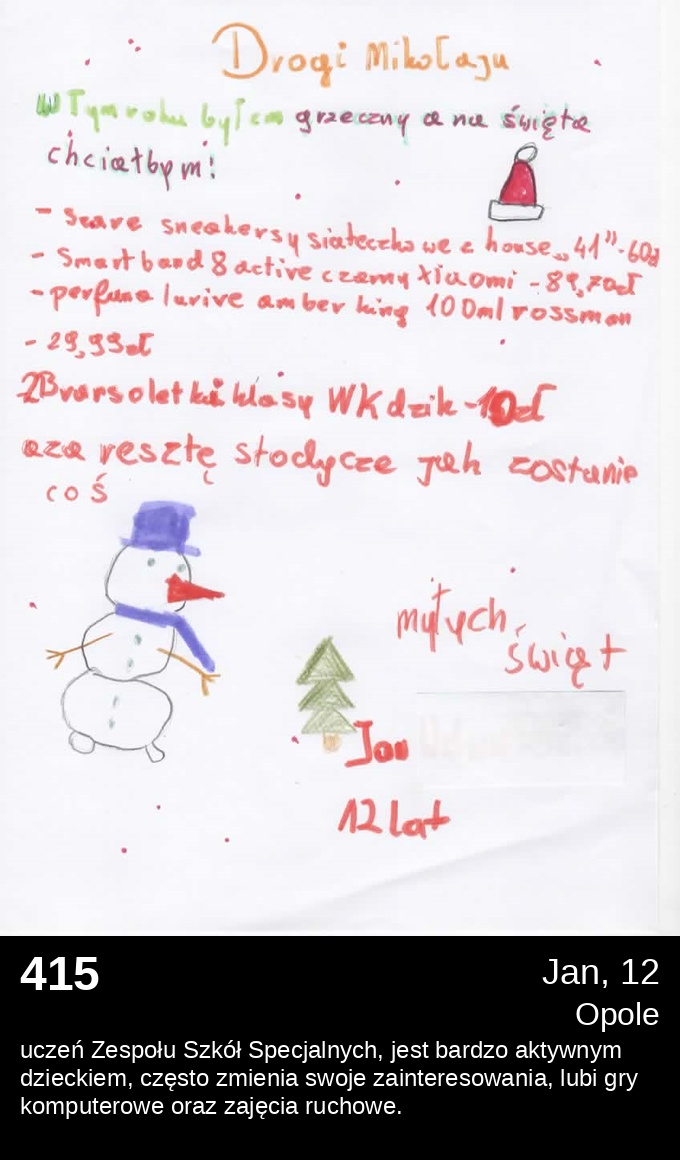 Drogi Mikołaju
W Tym roku byłem grzeczny a na święta
chciałbym!
- szare sneakersy siateczkowe z house „41”-60zł
- Smart band 8 active czarny Xiaomi - 89,70zł
- perfuna lurive amber king 100ml rossman
- 29,99zł
2Bransoletki klasy WK dzik - 10zł
aza resztę słodycze jak zostanie
coś
myłych
świąt
Jan
12 lat
415
Jan, 12
Opole
uczeń Zespołu Szkół Specjalnych, jest bardzo aktywnym
dzieckiem, często zmienia swoje zainteresowania, lubi gry
komputerowe oraz zajęcia ruchowe.